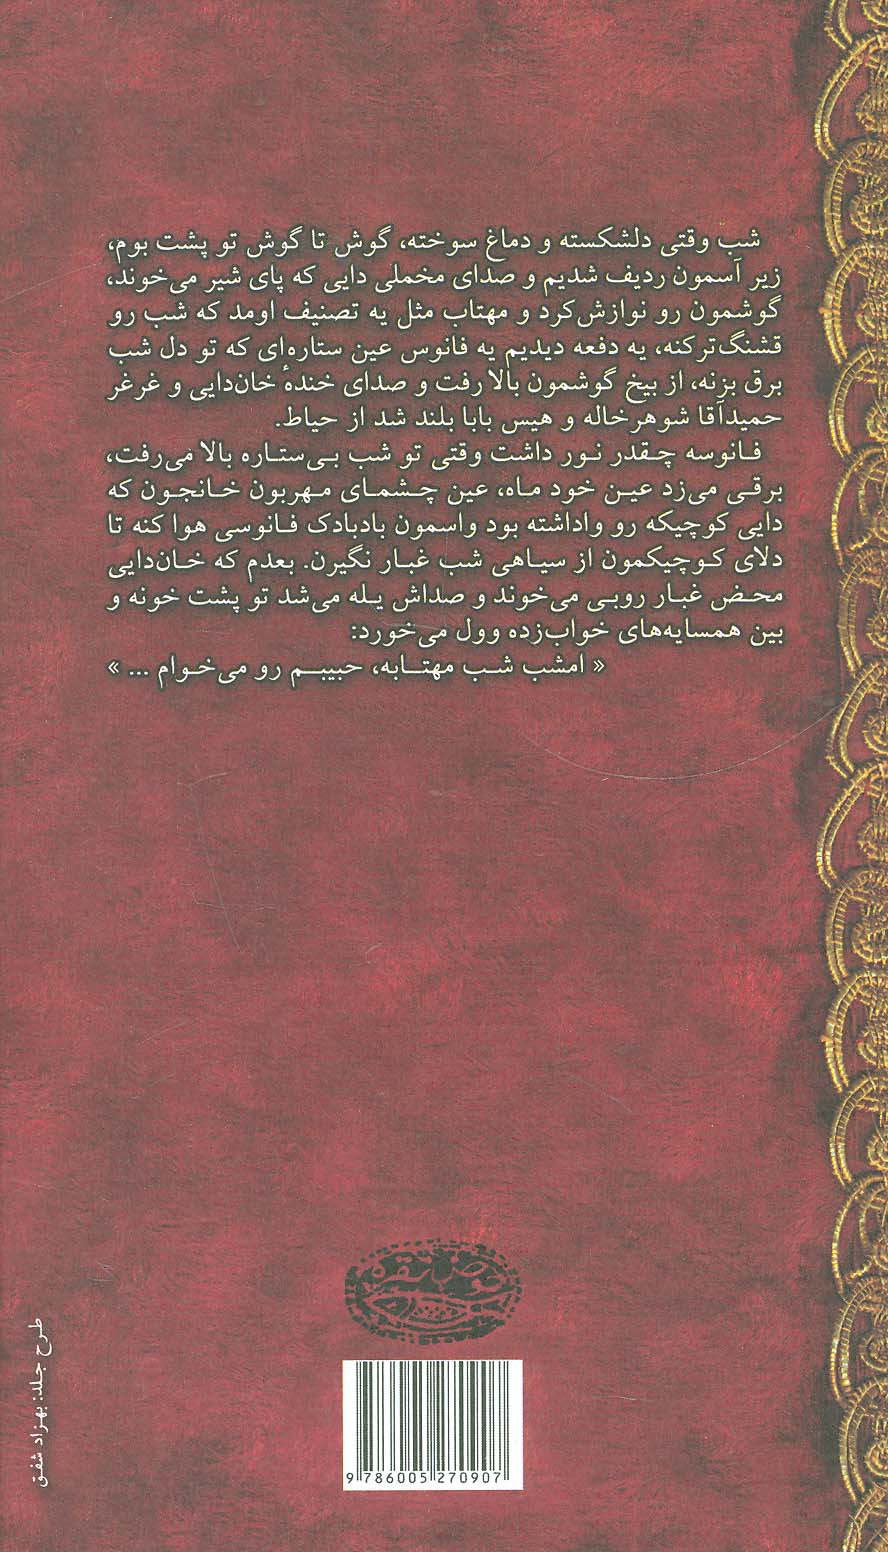 شب وقتی دلشکسته و دماغ سوخته، گوش تا گوش تو پشت بوم،
زیر آسمون ردیف شدیم و صدای مخملی دایی که پای شیر می‌خوند،
گوشمون رو نوازش‌کرد و مهتاب مثل یه تصنیف اومد که شب رو
قشنگ‌ترکنه، یه دفعه دیدیم یه فانوس عین ستاره‌ای که تو دل شب
برق بزنه، از بیخ گوشمون بالا رفت و صدای خندهٔ خان‌دایی و غرغر
حمیدآقا شوهرخاله و هیس بابا بلند شد از حیاط.
فانوسه چقدر نور داشت وقتی تو شب بی‌ستاره بالا می‌رفت،
برقی می‌زد عین خود ماه، عین چشمای مهربون خانجون که
دایی کوچیکه رو واداشته بود واسمون بادبادک فانوسی هوا کنه تا
دلای کوچیکمون از سیاهی شب غبار نگیرن. بعدم که خان‌دایی
محض غبار روبی می‌خوند و صداش یله می‌شد تو پشت خونه و
بین همسایه‌های خواب‌زده وول می‌خورد:
« امشب شب مهتابه، حبیبم رو می‌خوام ... »
نقره
9 786005 270907
طرح جلد: بهزاد شفق